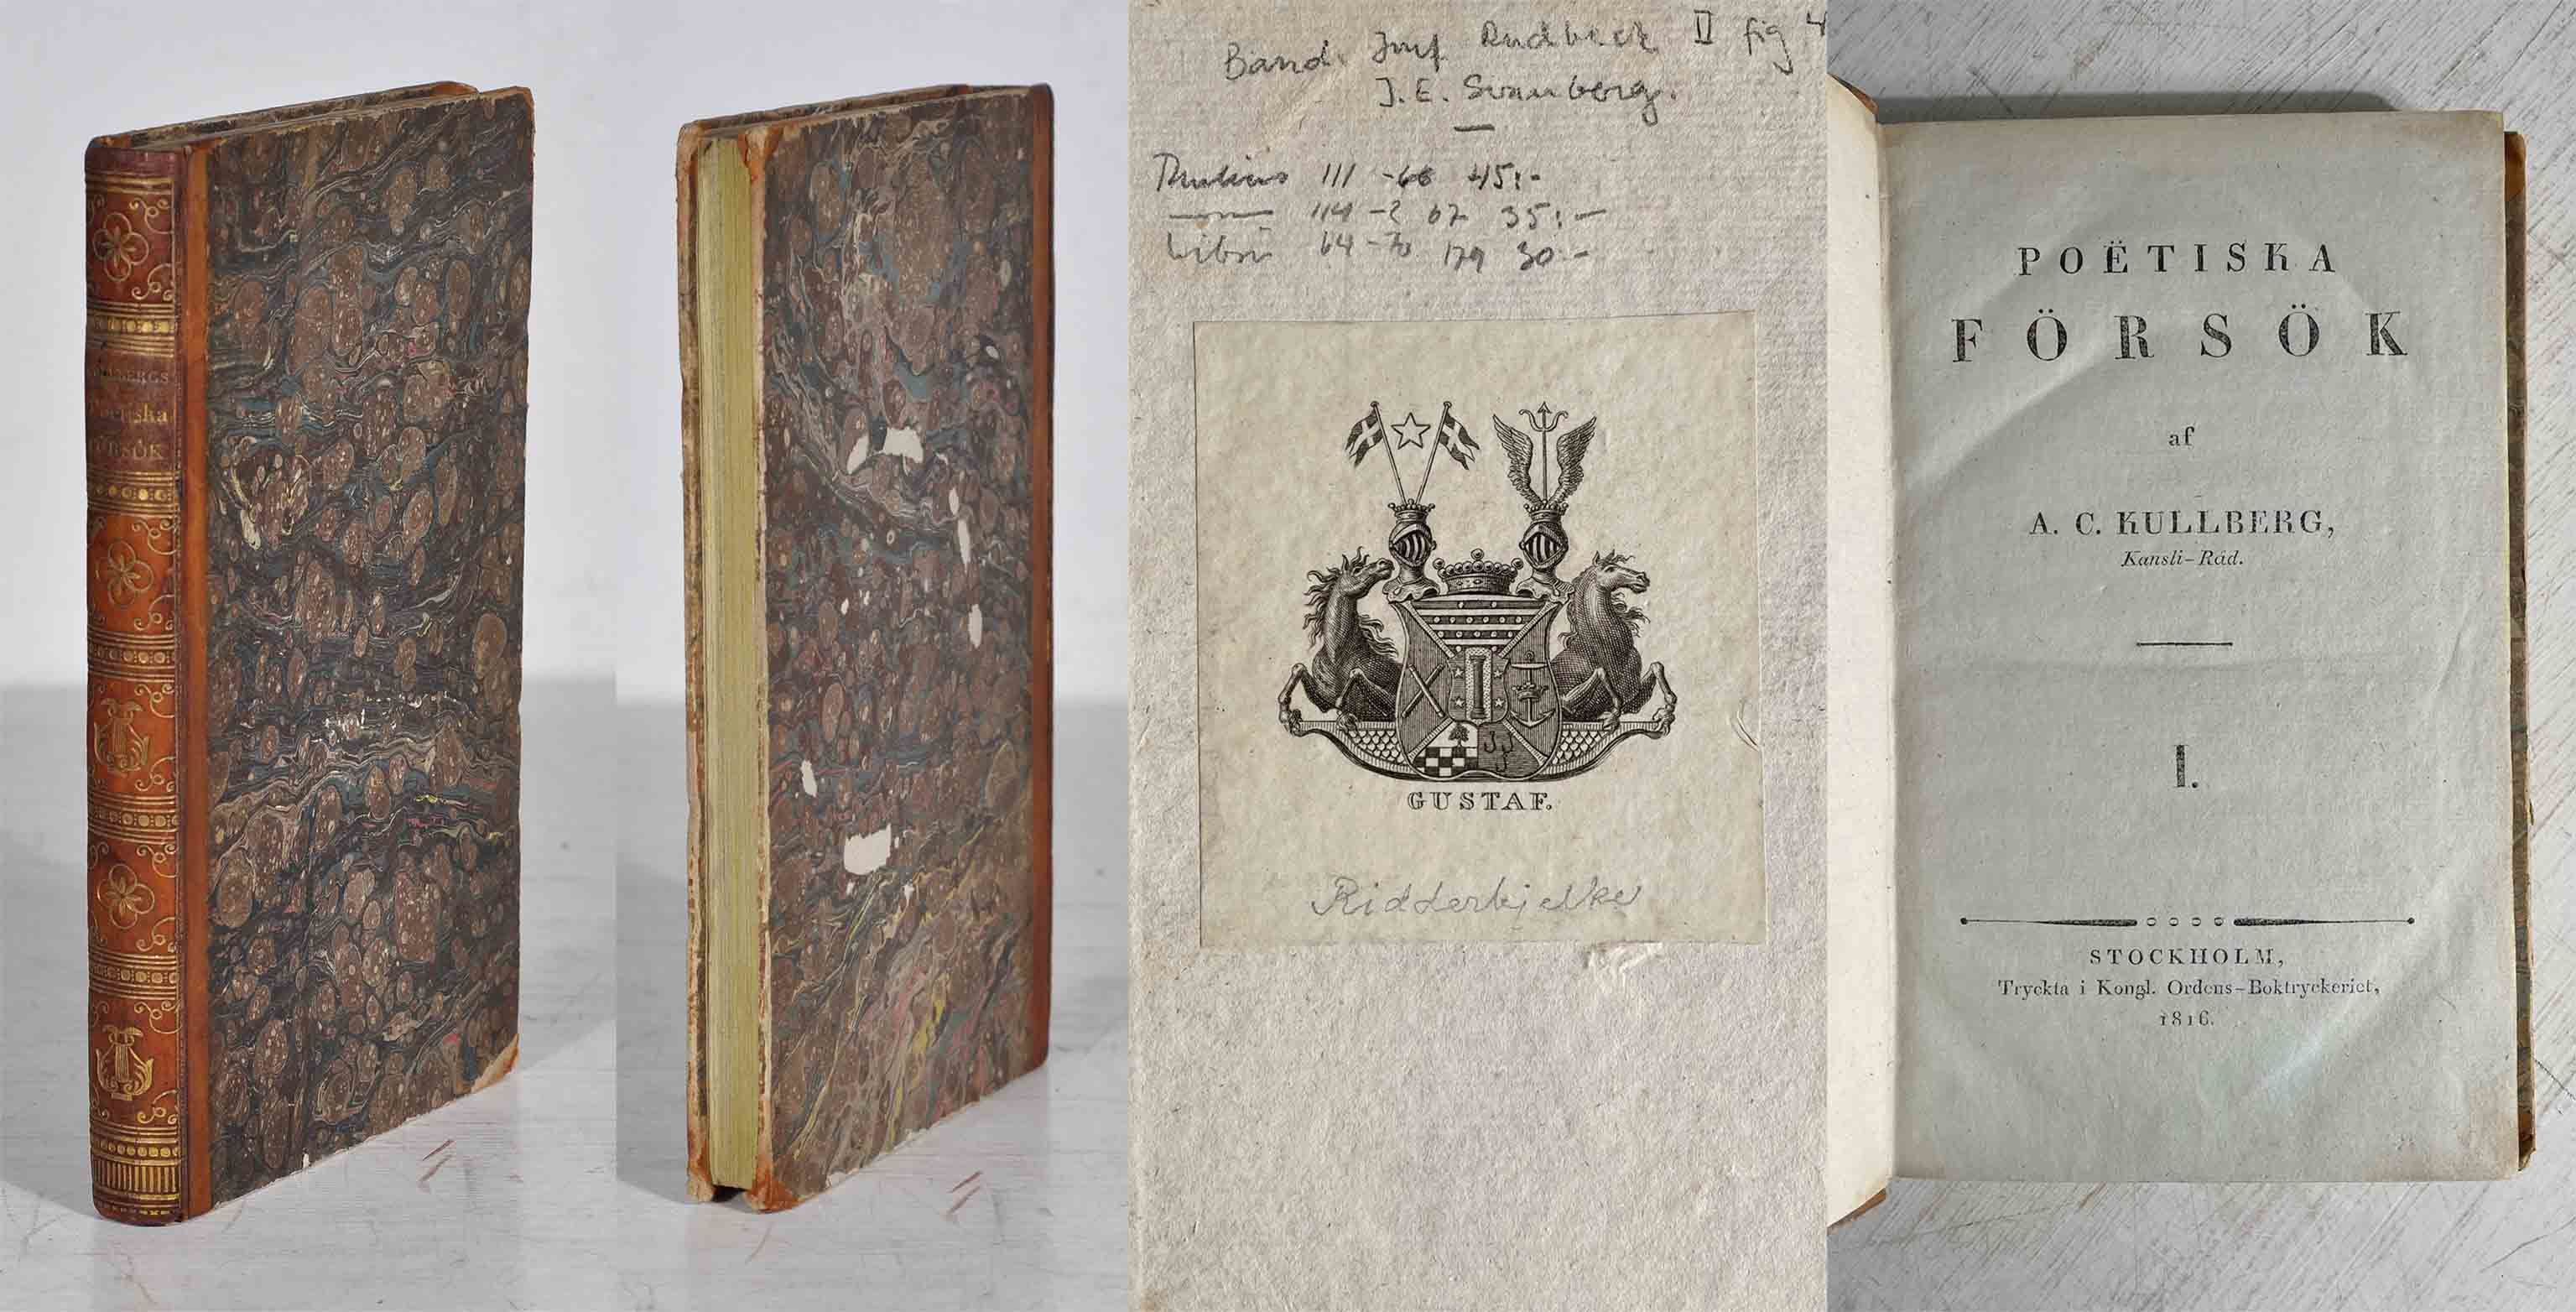 Poetiska
FÖRSÖK
Band. Jmf Rudbeck II fig 4
J. E. Svanberg.
111 -66 45:-
114 -2 67 35:-
Libris 64 -70 179 30 -
GUSTAF.
Ridderbjelke
POËTISKA
FÖRSÖK
af
A. C. KULLBERG,
Kansli-Råd.
I.
STOCKHOLM,
Tryckta i Kongl. Ordens-Boktryckeriet,
1816.